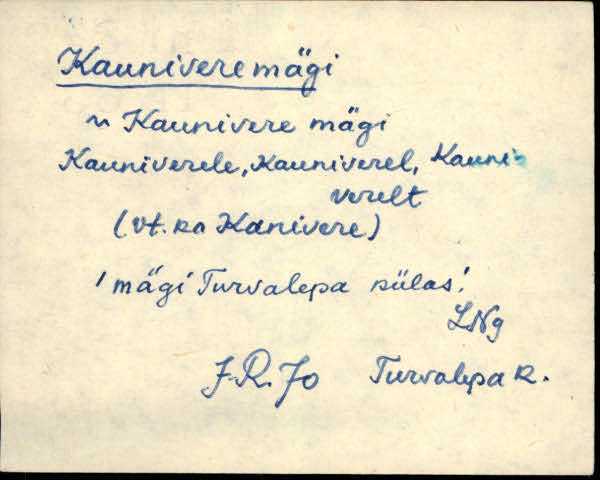 Kauniveremägi
~ Kaunivere mägi
Kauniverele, Kauniverel, Kauni-
verelt
(vt. ka Kanivere)
'mägi Turvalepa külas'
LNg
J. R. Jo Turvalepa k.